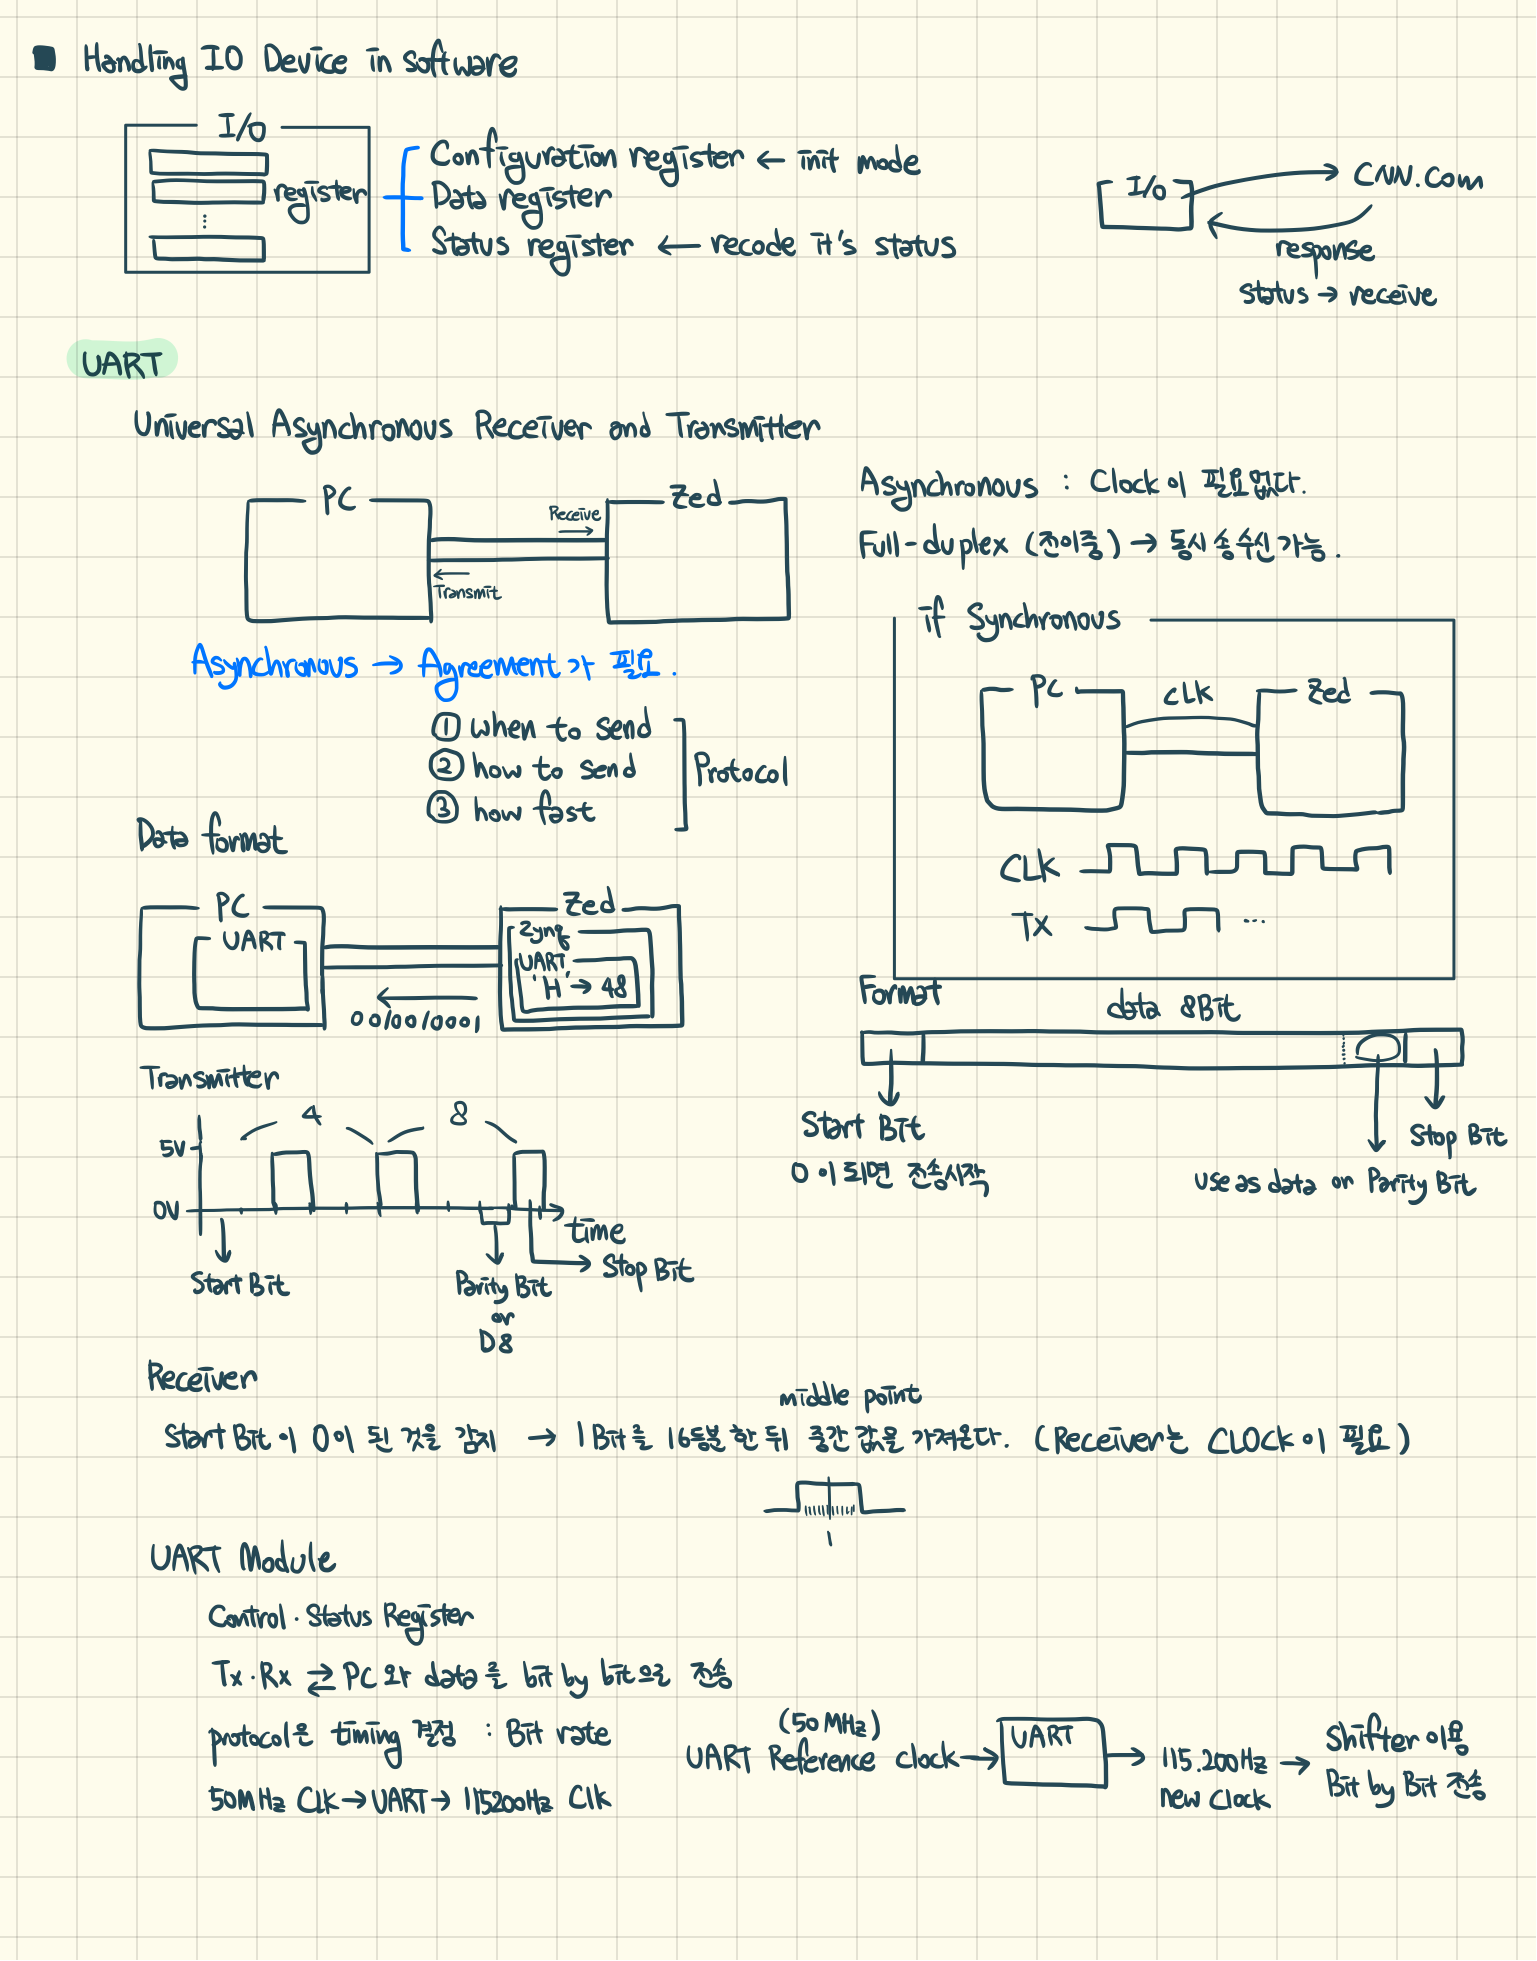 Handling IO Device in software
I/O
register
Configuration register ← init mode
Data register
Status register ← recode it's status
I/O
CNN.com
response
Status → receive
UART
Universal Asynchronous Receiver and Transmitter
PC
Zed
Receive
Transmit
Asynchronous → Agreement가 필요.
① when to send
② how to send
③ how fast
Protocol
Asynchronous : Clock이 필요없다.
Full-duplex (전이중) → 동시 송수신 가능.
if Synchronous
PC
CLK
Zed
CLK
TX ...
Data format
PC
UART
Zed
Zynq
UART
'H' → 48
00100/0001
Transmitter
5V
0V
4
8
time
Start Bit
Parity Bit
or
D8
Stop Bit
Format
data 8Bit
Start Bit
0이 되면 전송시작
Stop Bit
use as data or Parity Bit
Receiver
Start Bit이 0이 된 것을 감지 → 1Bit를 16등분 한 뒤 중간 값을 가져온다. (Receiver는 CLOCK이 필요)
middle point
1
UART Module
Control·Status Register
Tx·Rx ⇄ PC와 data를 bit by bit으로 전송
protocol은 timing 결정 : Bit rate
50MHz CLK → UART → 115200Hz Clk
(50MHz)
UART Reference clock →
UART
→ 115.200Hz →
new Clock
Shifter 이용
Bit by Bit 전송